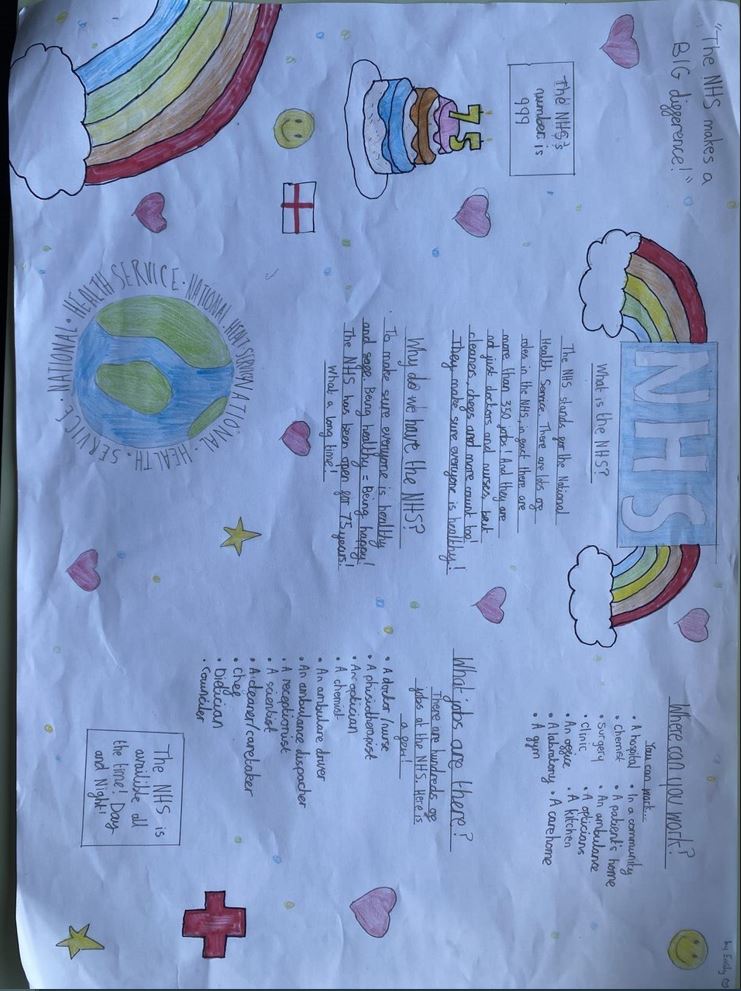 "The NHS makes a
BIG difference!"
The NHS's
number is
999
75
NHS
What is the NHS?
The NHS stands for the National
Health Service. There are lots of
roles in the NHS, in fact there are
more than 350 jobs! And they are
not just doctors and nurses, but
cleaners, chefs and more count too!
They make sure everyone is healthy!
Why do we have the NHS?
To make sure everyone is healthy
and safe. Being healthy = Being happy!
The NHS has been open for 75 years!
What a long time!
NATIONAL • HEALTH • SERVICE • NATIONAL • HEALTH SERVICE • NATIONAL HEALTH SERVICE
Where can you work?
You can work...
• A hospital • In a community
• chemist • A patient's home
• Surgery • An ambulance
• clinic • A opticians
• An office • A kitchen
• A labratory • A care home
• A gym
What jobs are there?
There are hundreds of
jobs at the NHS. Here is
a few!
• A doctor/nurse
• A phisiothorapist
• An optician
• A chemist
• An ambulare driver
• An ambulance dispacher
• A receptionist
• A scientist
• A cleaner/caretaker
• Chef
• Dietician
• Councilor
The NHS is
availible all
the time! Day
and Night!
by Emily